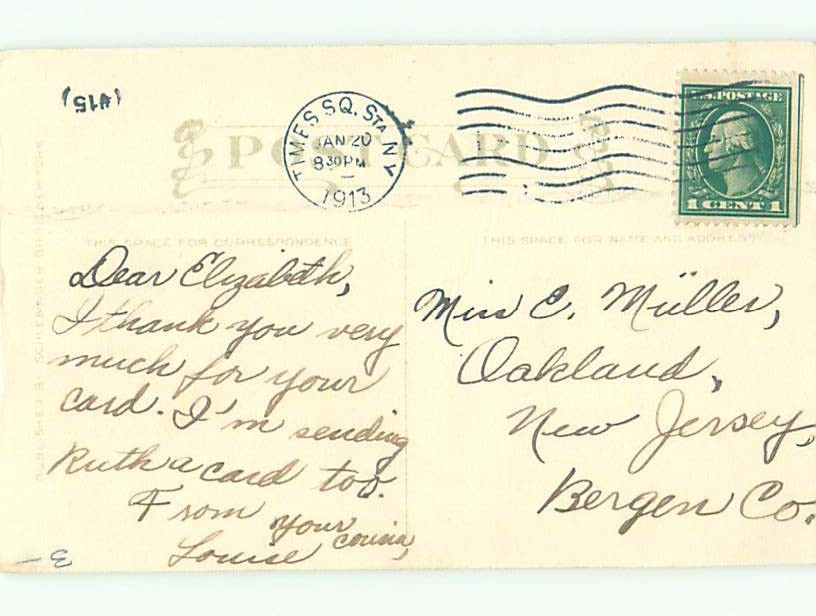 (#15)
TIMES SQ. STA. N.Y.
JAN 20
8 30 PM
1913
U.S. POSTAGE
1 CENT 1
POST CARD
THIS SPACE FOR CORRESPONDENCE
THIS SPACE FOR NAME AND ADDRESS
Dear Elizabeth,
I thank you very
much for your
card. I'm sending
Ruth a card too.
From your cousin,
Louise
Miss E. Müller,
Oakland,
New Jersey,
Bergen Co.
PUBLISHED BY SCHLESINGER BROS. NEW YORK
3-